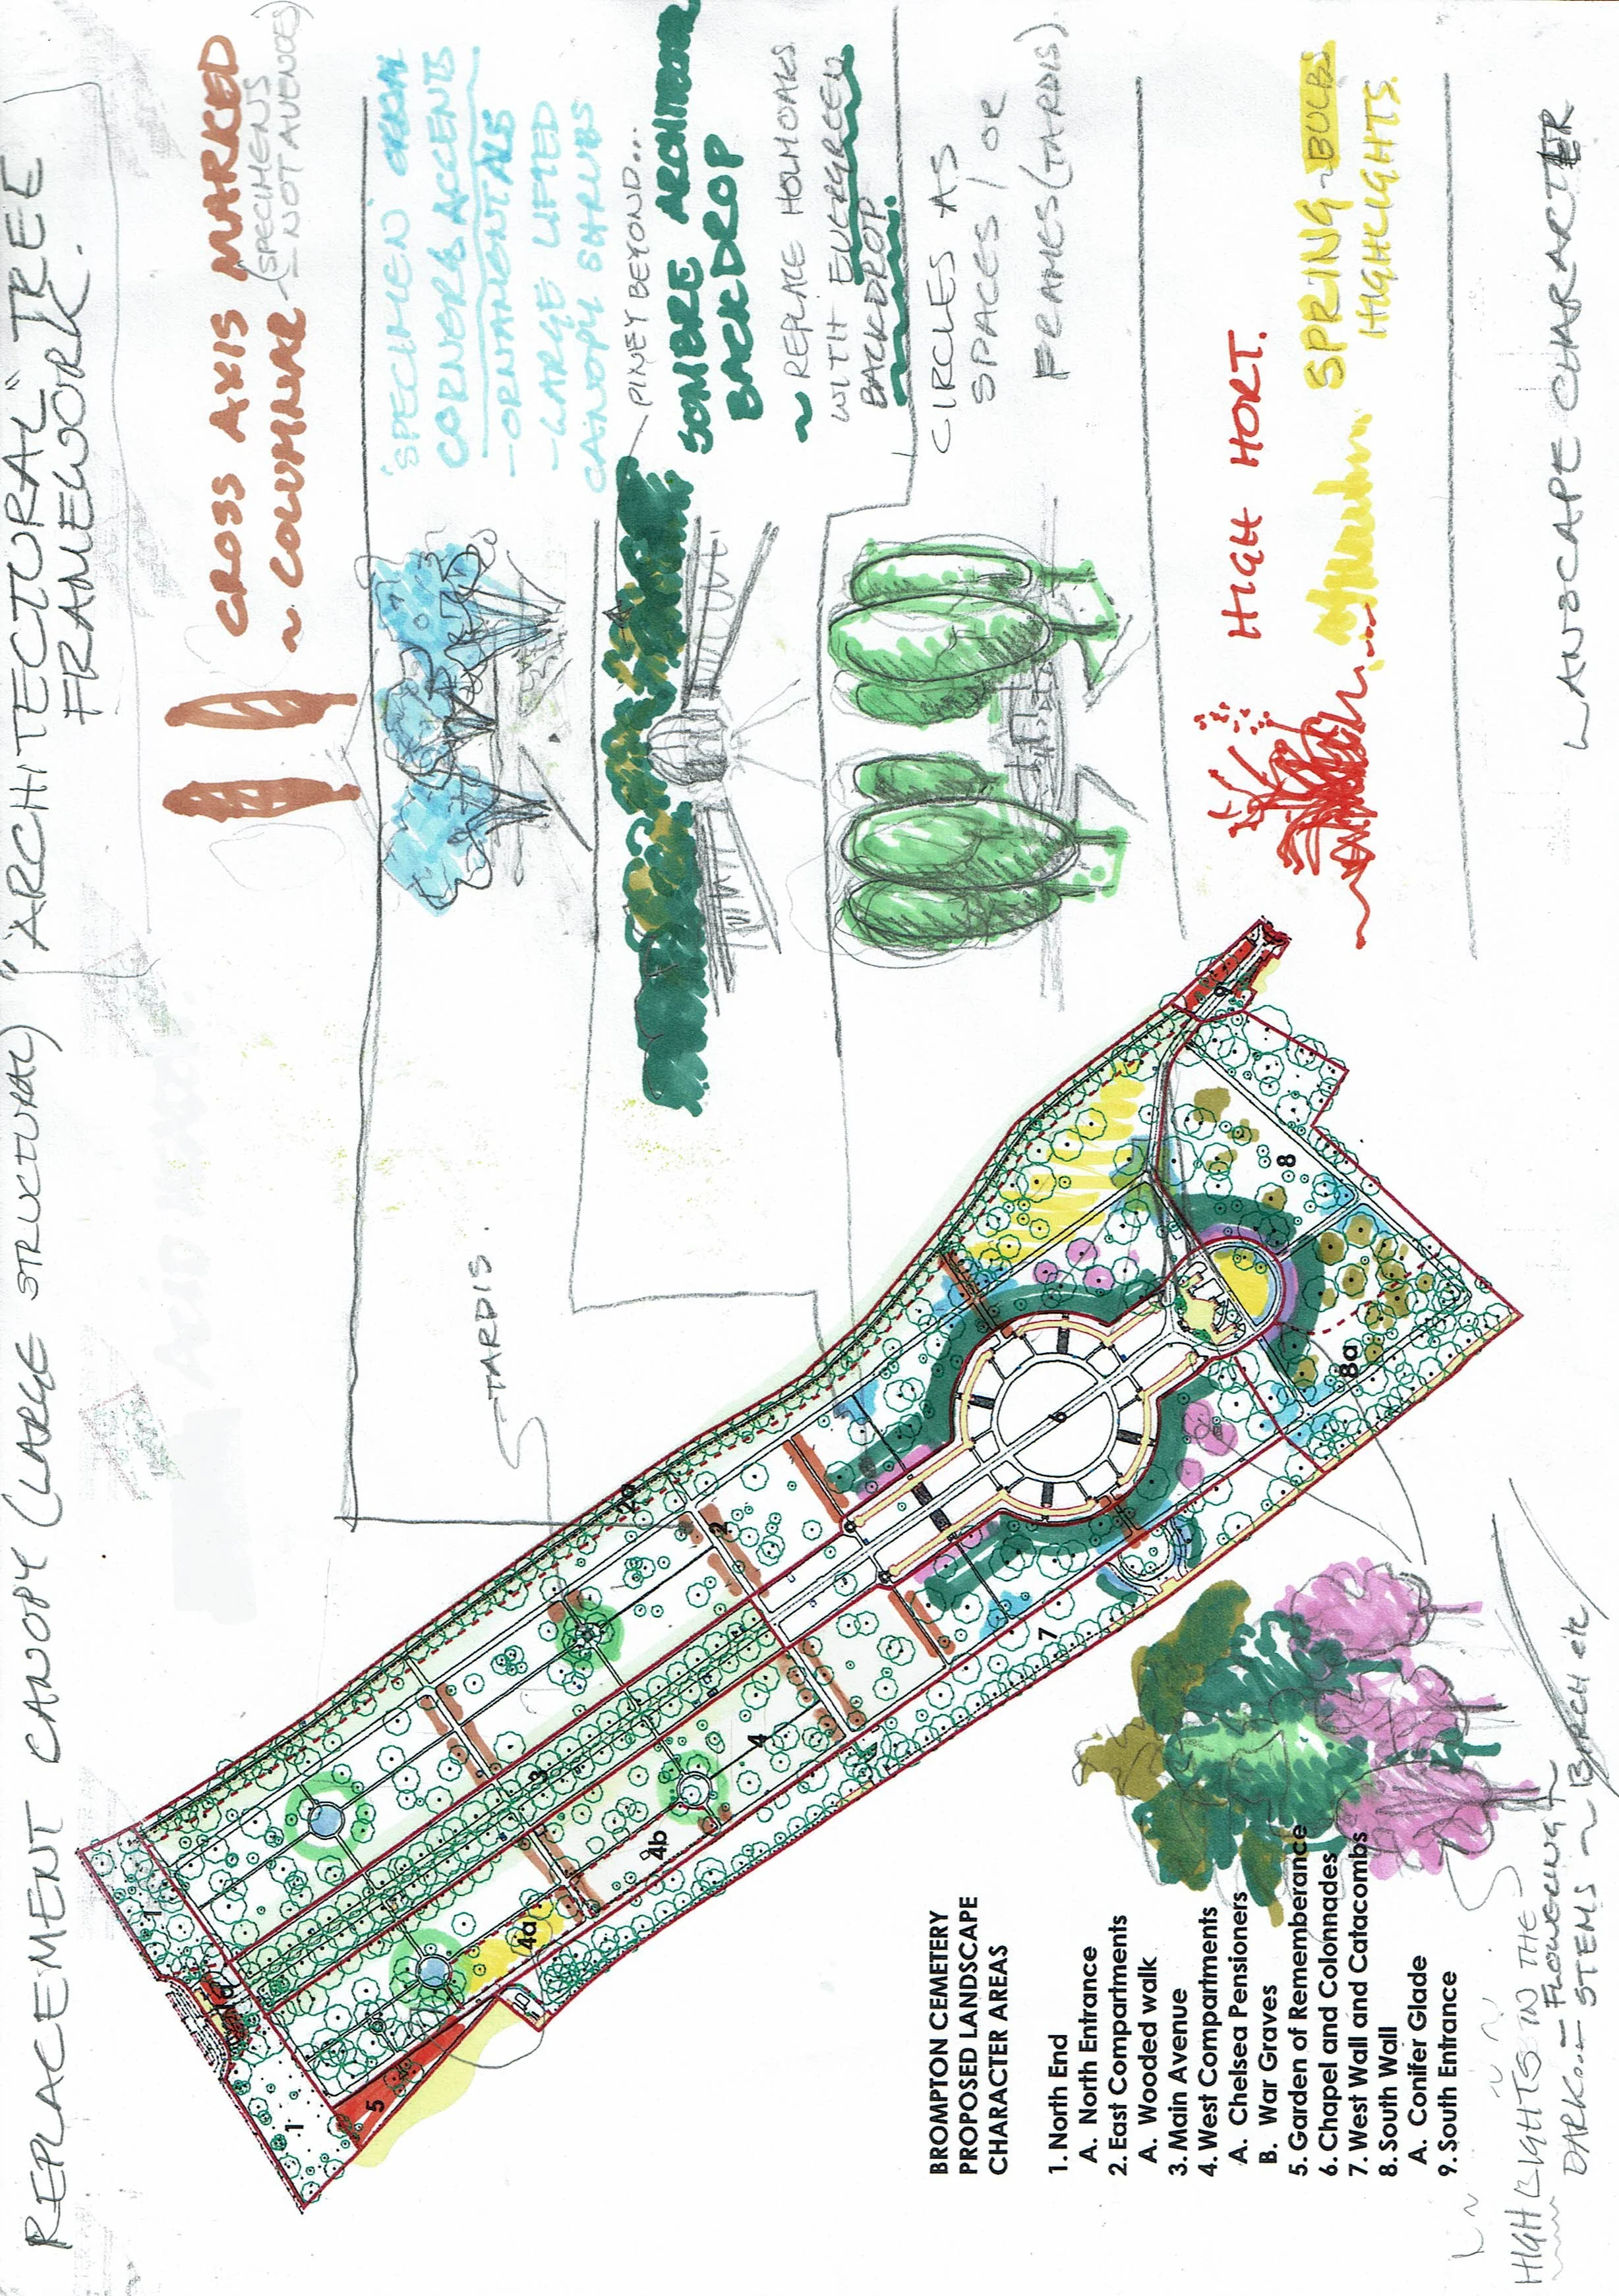 REPLACEMENT CANOPY (LARGE STRUCTURAL) "ARCHITECTURAL" TREE
FRAMEWORK.
CROSS AXIS MARKED
~ COLUMNAR (SPECIMENS
– NOT AVENUES)
'SPECIMEN'
CORNERS ACCENTS
– ORNAMENTALS
– LARGE LIFTED
CANOPY SHRUBS
PINEY BEYOND...
SOMBRE
BACKDROP
~ REPLACE HOLMOAKS
WITH EVERGREEN
BACKDROP.
CIRCLES AS
SPACES / OR
FRAMES (TARDIS)
TARDIS.
HIGH HORT.
SPRING ~ BULBS
HIGHLIGHTS.
LANDSCAPE CHARARTER
1
1
1a
2
2a
3
4
4a
4b
5
6
7
8
8a
9
BROMPTON CEMETERY
PROPOSED LANDSCAPE
CHARACTER AREAS
1. North End
A. North Entrance
2. East Compartments
A. Wooded walk
3. Main Avenue
4. West Compartments
A. Chelsea Pensioners
B. War Graves
5. Garden of Rememberance
6. Chapel and Colonnades
7. West Wall and Catacombs
8. South Wall
A. Conifer Glade
9. South Entrance
HIGHLIGHTS IN THE
DARK... – FLOWERING
– STEMS ~ BIRCH etc